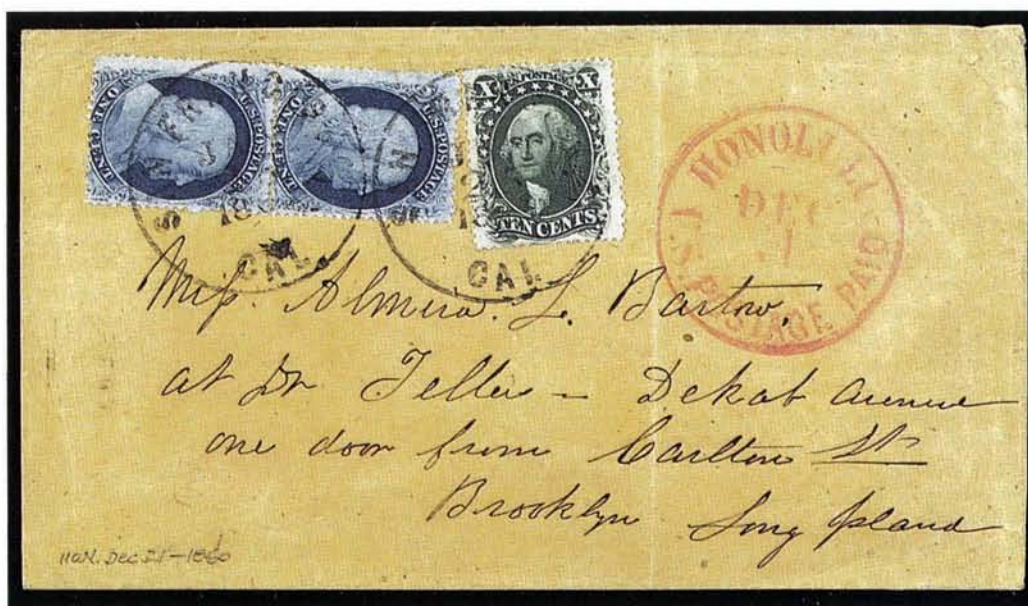 U.S. POSTAGE
ONE CENT
U.S. POSTAGE
ONE CENT
X U.S. POSTAGE X
TEN CENTS
SAN FRANCISCO
CAL.
CAL.
HONOLULU
DEC
U.S. POSTAGE PAID
Miss. Almira. L. Bartow.
at Dr Tellers – Dekab Avenue
one door from Carlton St
Brooklyn Long Island
HON. Dec 21–1860